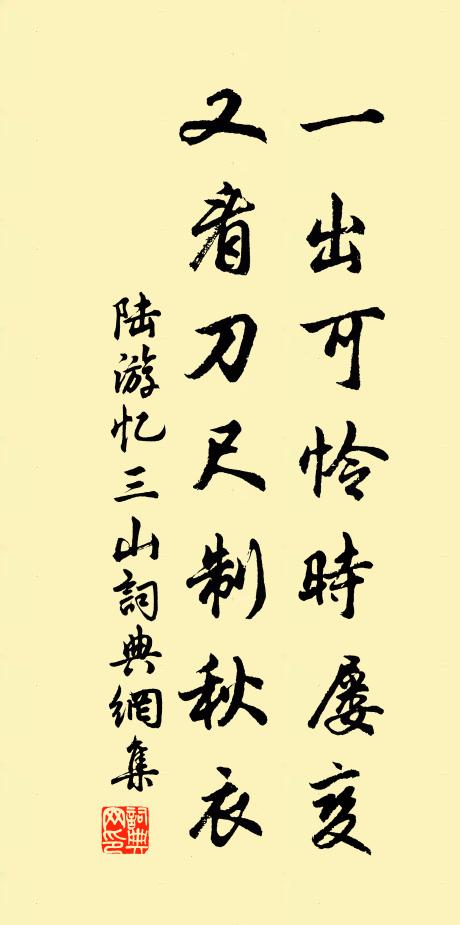 一出可怜時屡变
又看刀尺制秋衣
陆游忆三山詞典網集
詞典网印